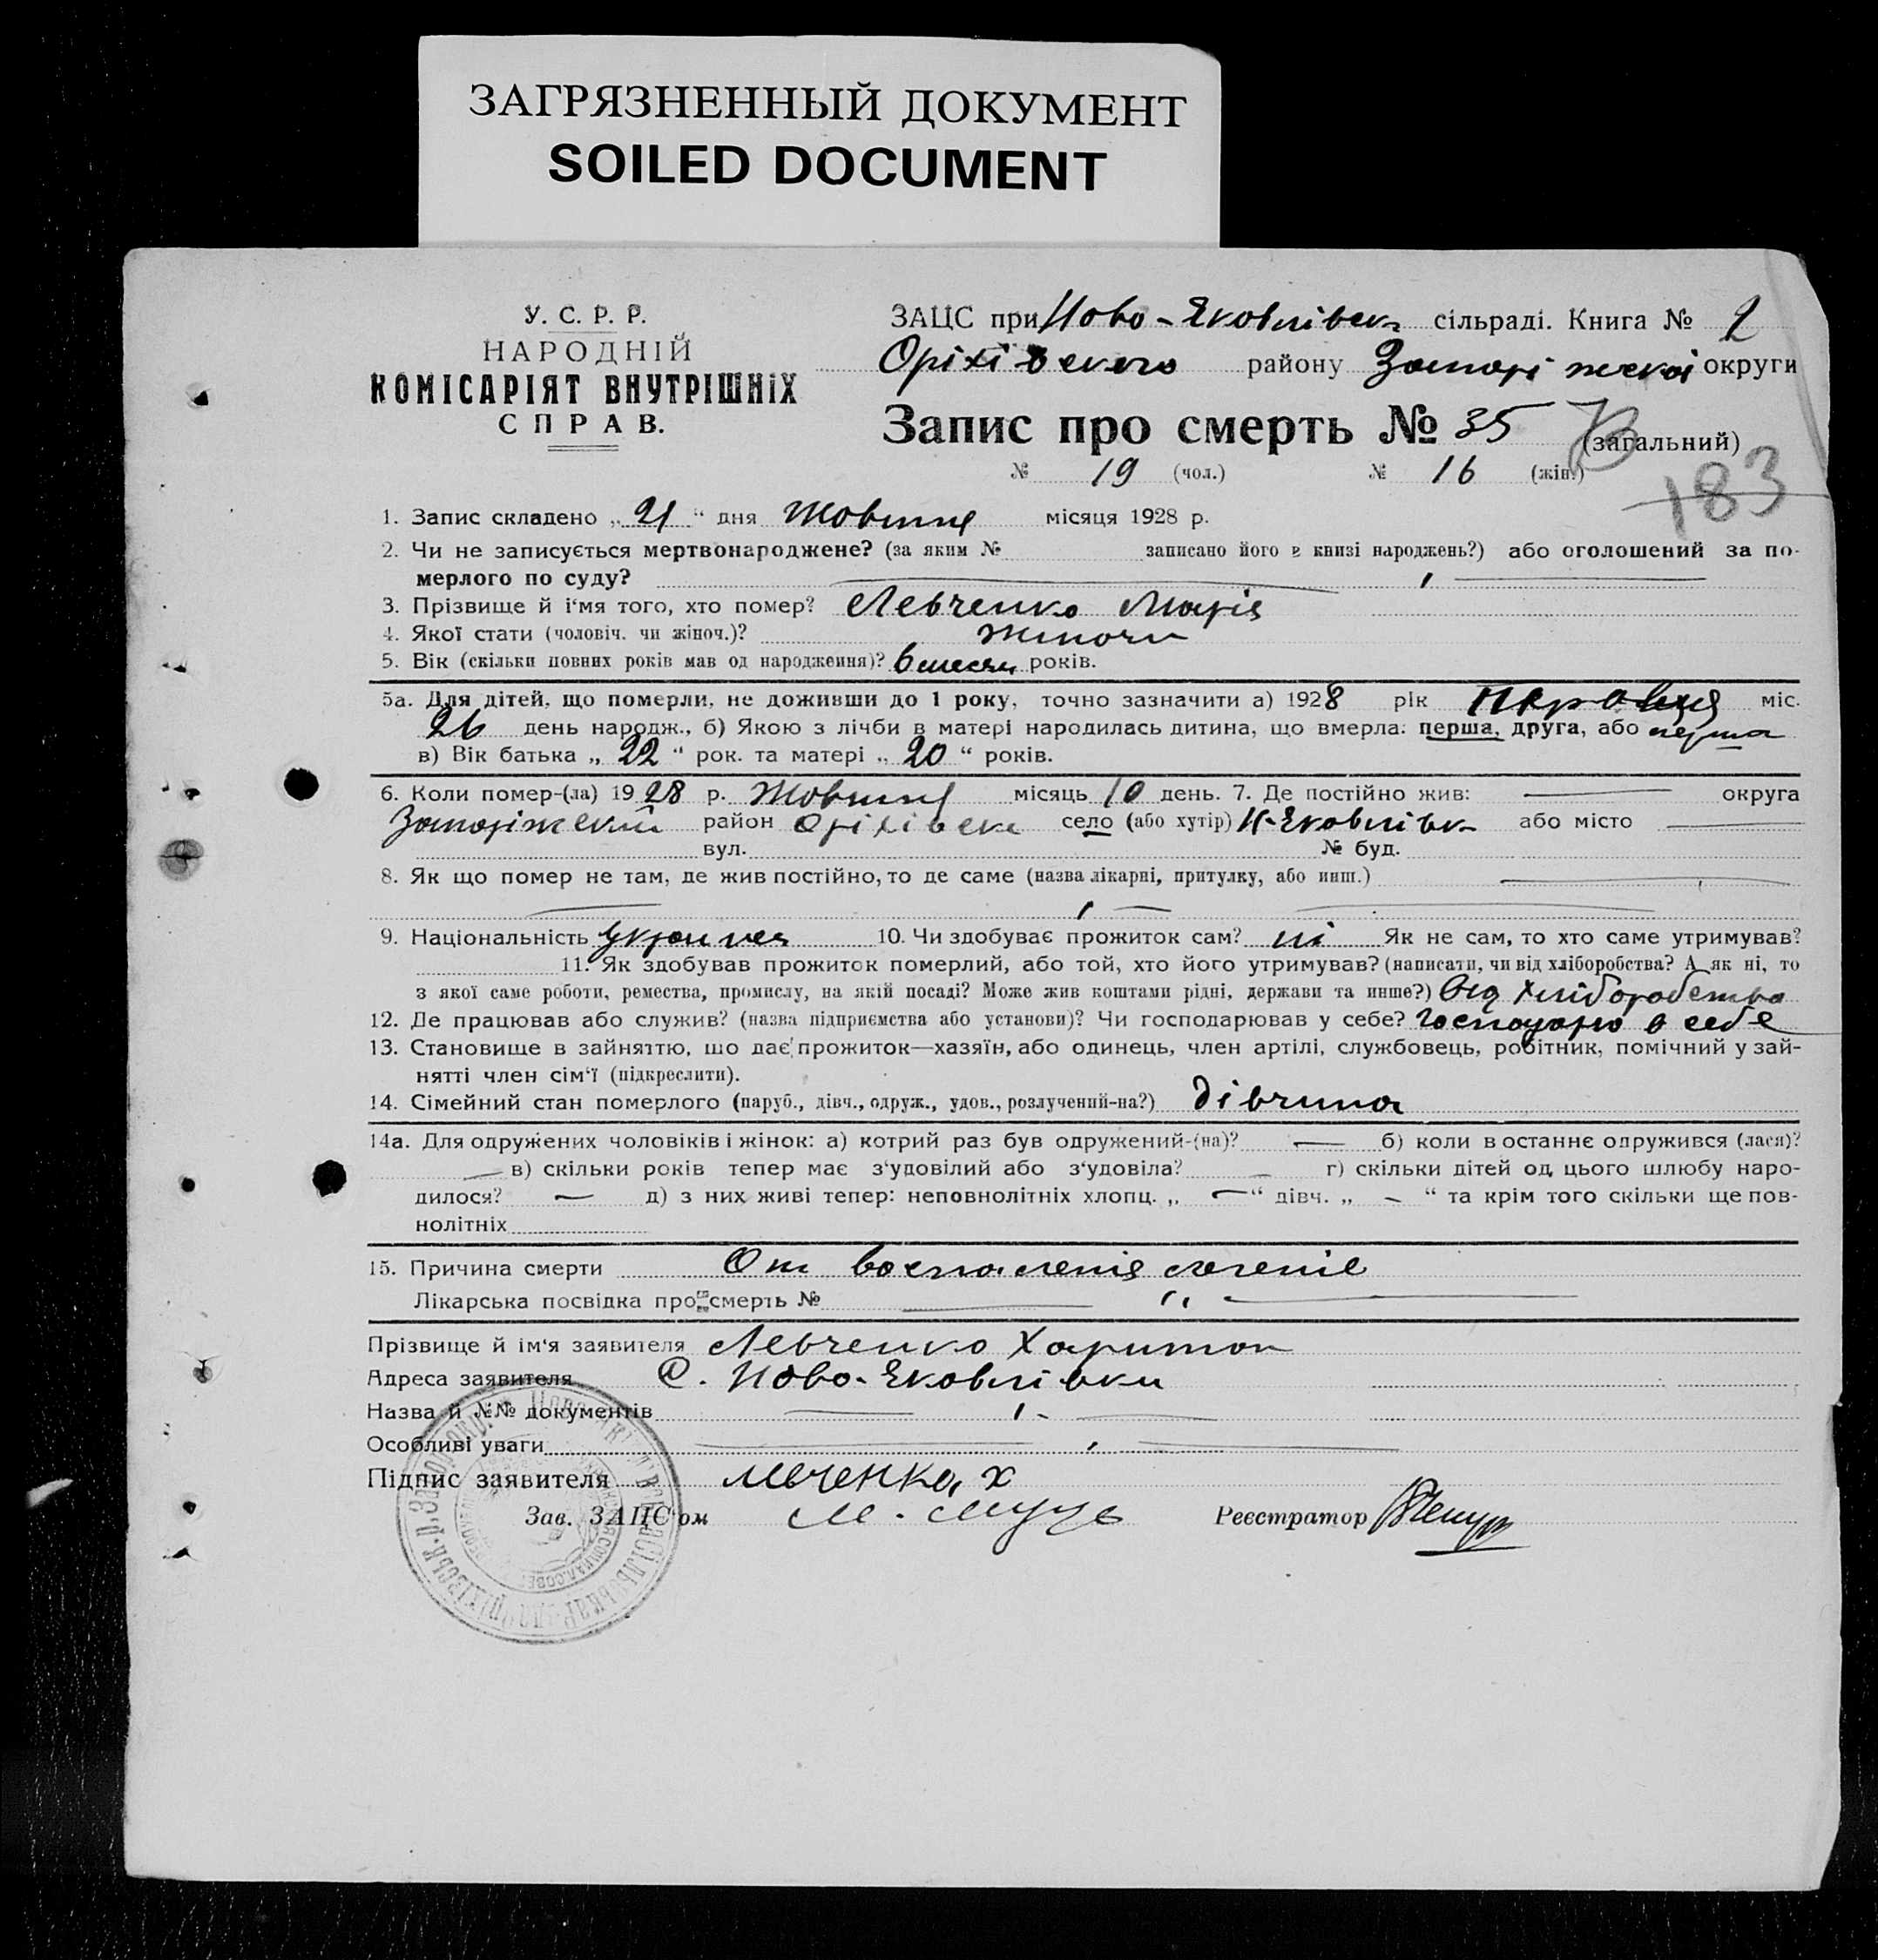 ЗАГРЯЗНЕННЫЙ ДОКУМЕНТ
SOILED DOCUMENT
У. С. Р. Р.
НАРОДНІЙ
КОМІСАРІЯТ ВНУТРІШНІХ
СПРАВ.
ЗАЦС при Ново-Яковлівськ сільраді. Книга № 2
Оріхівського району Запоріжської округи
Запис про смерть № 35 (загальний)
183
№ 19 (чол.) № 16 (жін.)
1. Запис складено „21“ дня Жовтня місяця 1928 р.
2. Чи не записується мертвонароджене? (за яким № записано його в книзі народжень?) або оголошений за по-
мерлого по суду?
3. Прізвище й і‘мя того, хто помер? Левченко Марія
4. Якої стати (чоловіч. чи жіноч.)? жіночи
5. Вік (скільки повних років мав од народження)? 6 месяц років.
5а. Для дітей, що померли, не доживши до 1 року, точно зазначити а) 1928 рік міс.
26 день народж., б) Якою з лічби в матері народилась дитина, що вмерла: перша, друга, або перша
в) Вік батька „22“ рок. та матері „20“ років.
6. Коли помер-(ла) 1928 р. Жовтня місяць 10 день. 7. Де постійно жив: округа
Запоріжський район Оріхівськ село (або хутір) Н-Яковлівк або місто
вул. № буд.
8. Як що помер не там, де жив постійно, то де саме (назва лікарні, притулку, або инш.)
9. Національність 10. Чи здобуває прожиток сам? ні Як не сам, то хто саме утримував?
11. Як здобував прожиток померлий, або той, хто його утримував? (написати, чи від хліборобства? А як ні, то
з якої саме роботи, ремества, промислу, на якій посаді? Може жив коштами рідні, держави та инше?) Від хліборобства
12. Де працював або служив? (назва підприємства або установи)? Чи господарював у себе? Господарю в себе
13. Становище в зайняттю, що дає прожиток—хазяїн, або одинець, член артілі, службовець, робітник, помічний у зай-
нятті член сім‘ї (підкреслити).
14. Сімейний стан померлого (паруб., дівч., одруж., удов., розлучений-на?) дівчина
14а. Для одружених чоловіків і жінок: а) котрий раз був одружений-(на)? б) коли в останнє одружився (лася)?
в) скільки років тепер має з‘удовілий або з‘удовіла? г) скільки дітей од цього шлюбу наро-
дилося? д) з них живі тепер: неповнолітніх хлопц. „ “ дівч. „ “ та крім того скільки ще пов-
нолітніх
15. Причина смерти От воспаленія легеніе
Лікарська посвідка про смерть №
Прізвище й ім‘я заявителя Левченко Харитон
Адреса заявителя С. Ново-Яковлівки
Назва й №№ документів
Особливі уваги
Підпис заявителя Левченко, Х
Зав. ЗАЦС‘ом Реєстратор